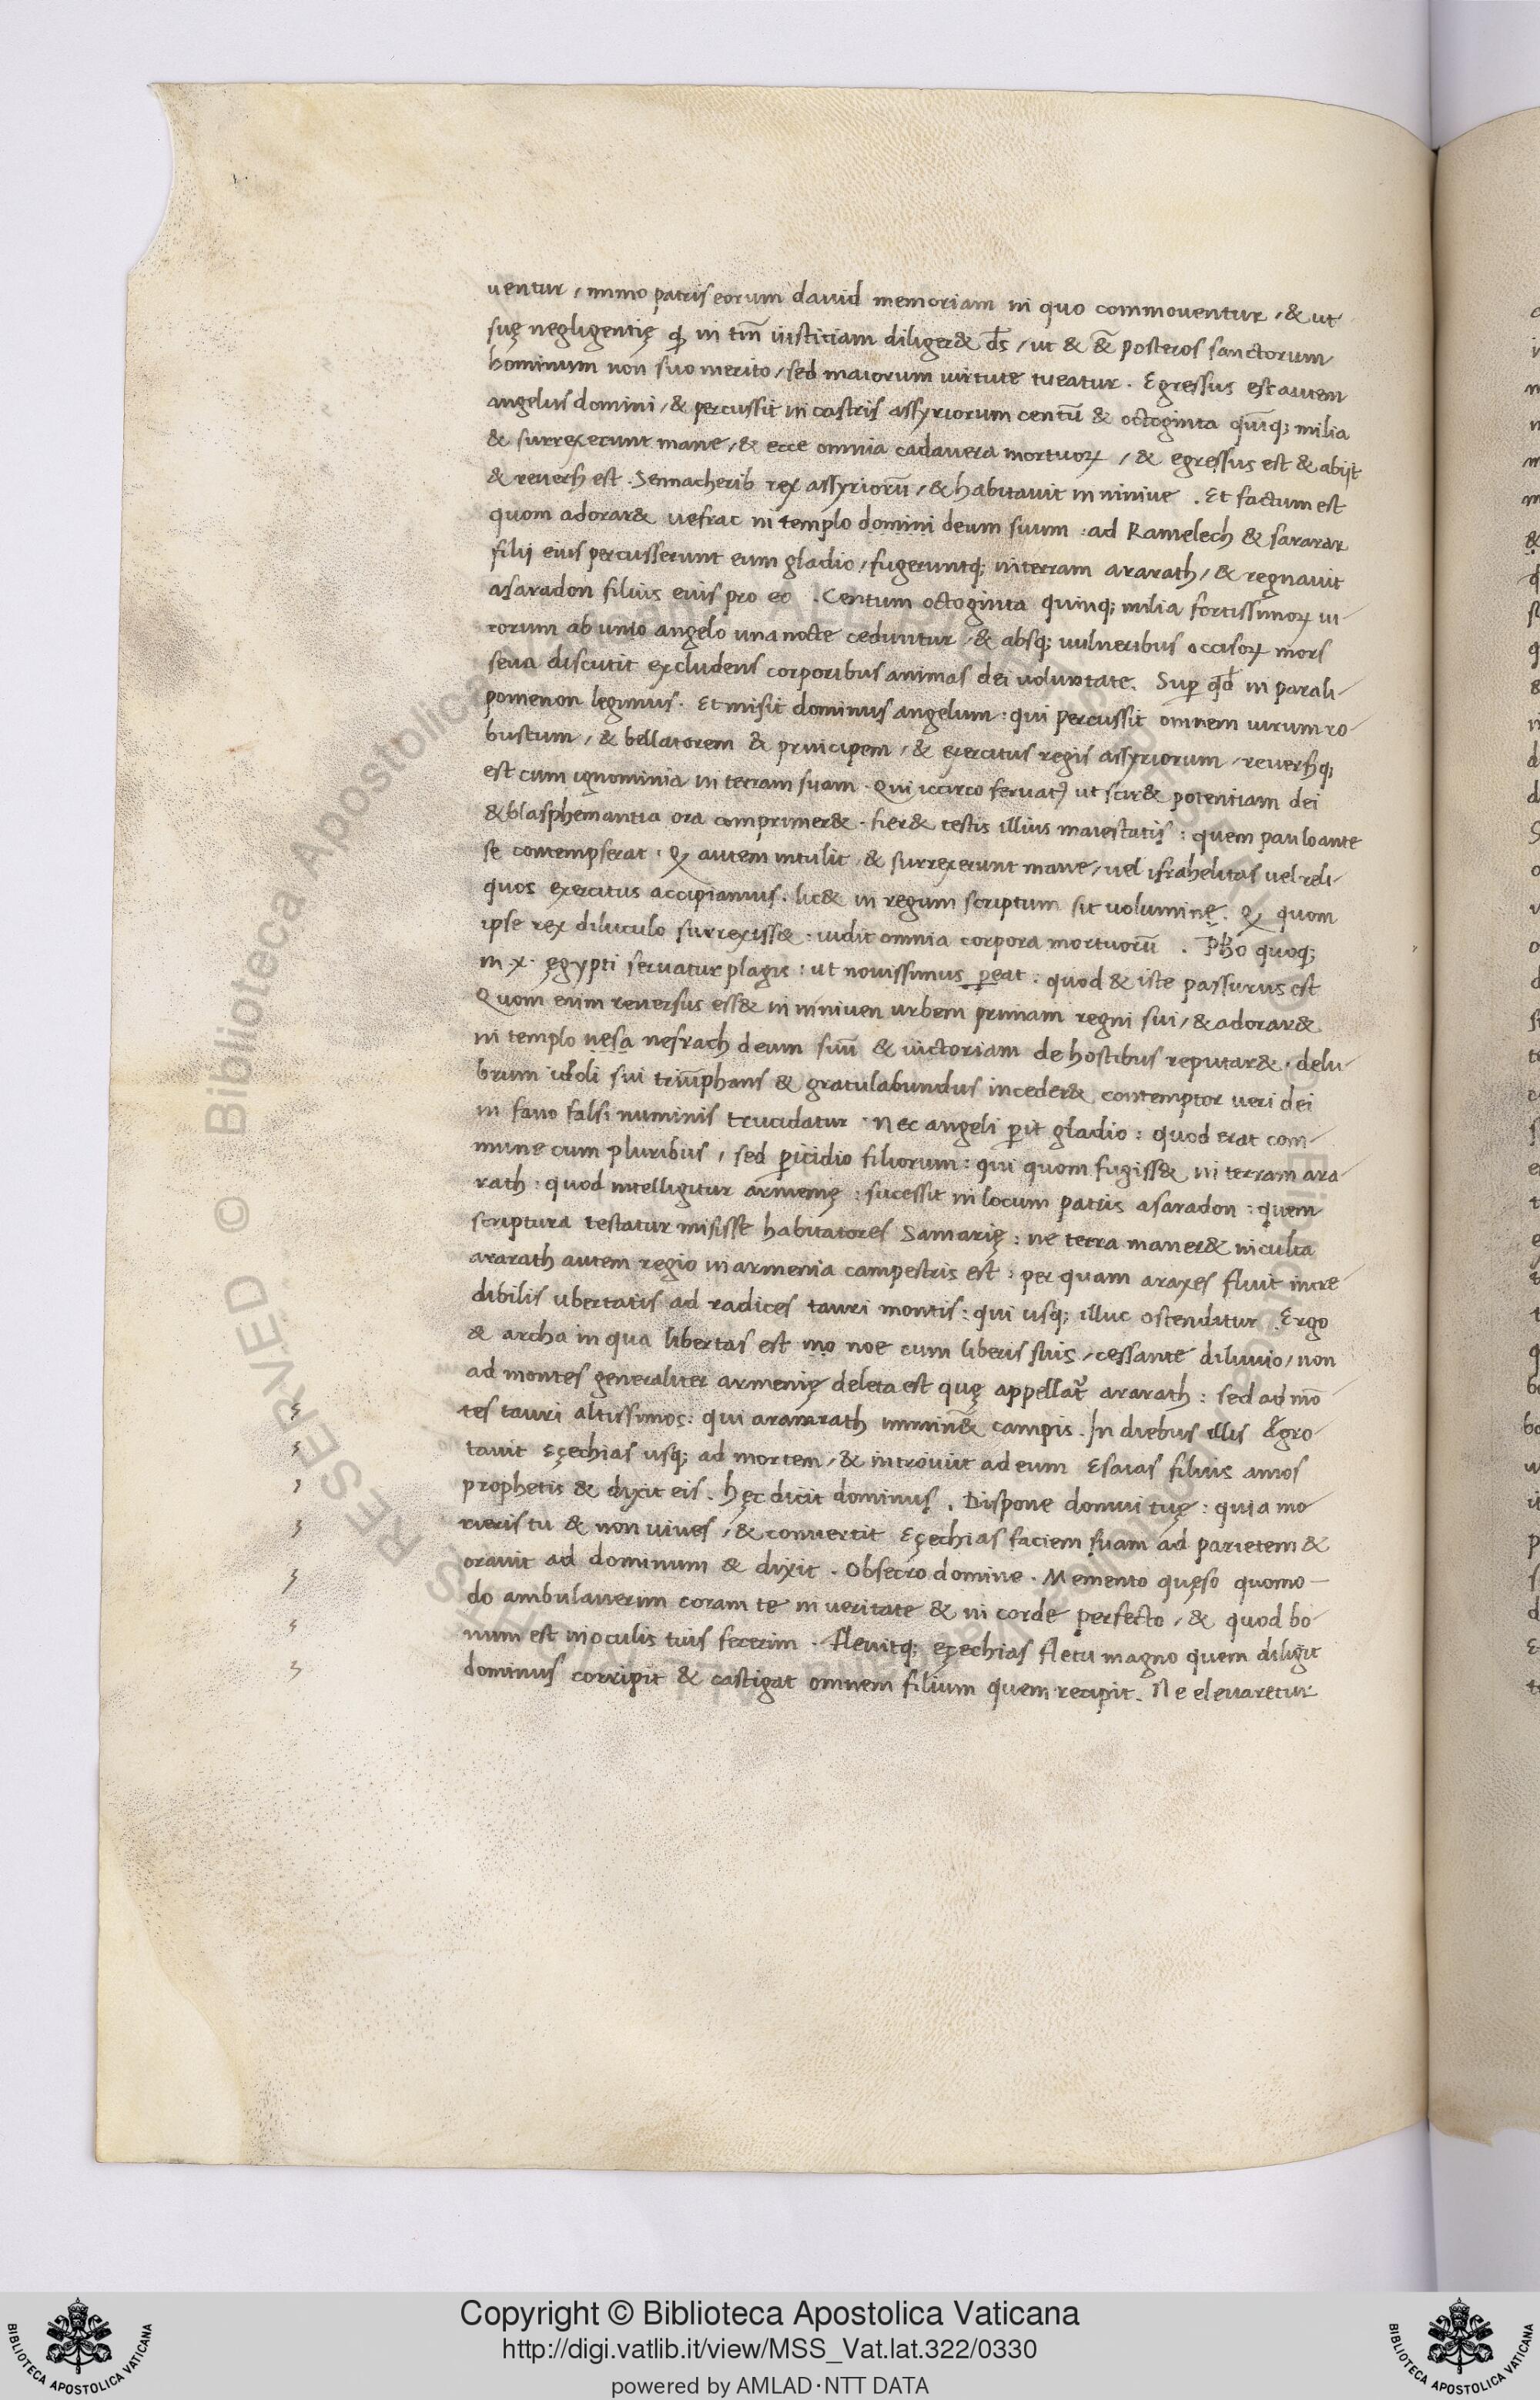 uentur, immo patris eorum dauid memoriam in quo commouentur, & ut
suę negligentię ꝙ in tm̄ iusticiam diliger& ds̄, ut & &̄ posteros sanctorum
hominum non suo merito, sed maiorum uirtute tueatur. Egressus est autem
angelus domini, & percussit in castris assyriorum centū & octoginta quīq; milia
& surrexerunt mane, & ecce omnia cadauera mortuoꝝ, & egressus est & abijt
& reuersꝰ est. Sennacherib rex assyriorū, & habitauit in niniue. Et factum est
quom adorar& nefrac in templo domini deum suum: ad Ramelech & sararar
filij eius percusserunt eum gladio, fugeruntq; in terram ararath, & regnauit
asaradon filius eius pro eo. Centum octoginta quinq; milia fortissimoꝝ ui-
rorum ab unio angelo una nocte ceduntur, & absq; uulneribus occisoꝝ mors
seua discutit excludens corporibus animas dei voluntate. Suꝑ qd̄ in parali-
pomenon legimus. Et misit dominus angelum: qui percussit omnem uirum ro-
bustum, & bellatorem & principem, & exercitus regis assyriorum, reuersꝰq;
est cum ignominia in terram suam. Qui iccirco seruat᷑ ut scir& potentiam dei
& blasphemantia ora comprimer&. fier& testis illius maiestatis: quem paulo ante
se contempserat. Qꝫ autem intulit, & surrexerunt mane, uel israhelitas uel reli-
quos exercitus accipiamus. lic& in regum scriptum sit uoluminę. Qꝫ quom
ipse rex diluculo surrexiss&: uidit omnia corpora mortuorū. Pho quoq;
in x. ęgypti seruatur plagis: ut nouissimus ꝑeat: quod & iste passurus est
Quom enim reuersus ess& in niniuen urbem primam regni sui, & adorar&
in templo nesa nesrach deum suū & uictoriam de hostibus reputar&. delu-
brum idoli sui triūphans & gratulabundus inceder& contemptor ueri dei
in fano falsi numinis trucidatur. Nec angeli ꝑit gladio: quod erat com-
mune cum pluribus, sed ꝑicidio filiorum: qui quom fugiss& in terram ara
rath: quod intelligitur armenię: sucessit in locum patris asaradon: quem
scriptura testatur misisse habitatores Samarię: ne terra maner& inculta
ararath autem regio in armenia campestris est: per quam araxes fluit incre-
dibilis ubertatis ad radices tauri montis: qui usq; illuc ostenditur. Ergo
& archa in qua libertas est mo noe cum liberis suis, cessante diluuio, non
ad montes generaliter armenię deleta est quę appellat᷑ ararath: sed ad mō
tes tauri altissimos: qui aramrath immin& campis. In diebus illis Ęgro-
tauit eçechias usq; ad mortem, & introiuit ad eum Esaias filius amos
prophetis & dixit eis. hęc dicit dominus. Dispone domui tuę: quia mo
rieris tu & non uiues, & conuertit Eçechias faciem suam ad parietem &
orauit ad dominum & dixit. Obsecro domine. Memento quęso quomo-
do ambulauerim coram te in ueritate & in corde perfecto, & quod bo-
num est in oculis tuis fecerim. fleuitq; eçechias fletu magno quem diligit
dominus corripit & castigat omnem filium quem recipit. Ne eleuaretur
Copyright © Biblioteca Apostolica Vaticana
http://digi.vatlib.it/view/MSS_Vat.lat.322/0330
powered by AMLAD·NTT DATA